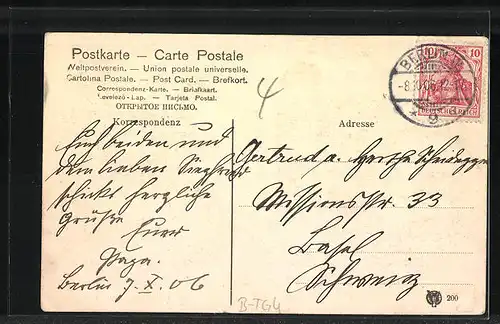 Postkarte — Carte Postale
Weltpostverein. — Union postale universelle.
Cartolina Postale. — Post Card. — Brefkort.
Correspondenz-Karte. — Briefkaart.
Levelező-Lap. — Tarjeta Postal.
ОТКРЫТОЕ ПИСЬМО.
Korrespondenz
Euch beiden und
dem lieben Siegfried
schickt herzliche
Grüße
Euer
Papa.
Berlin 7. X. 06
4
10 10
DEUTSCHES REICH
Adresse
Gertrud u.
Missionsstr. 33
Basel
Schweiz
200
B-TG4